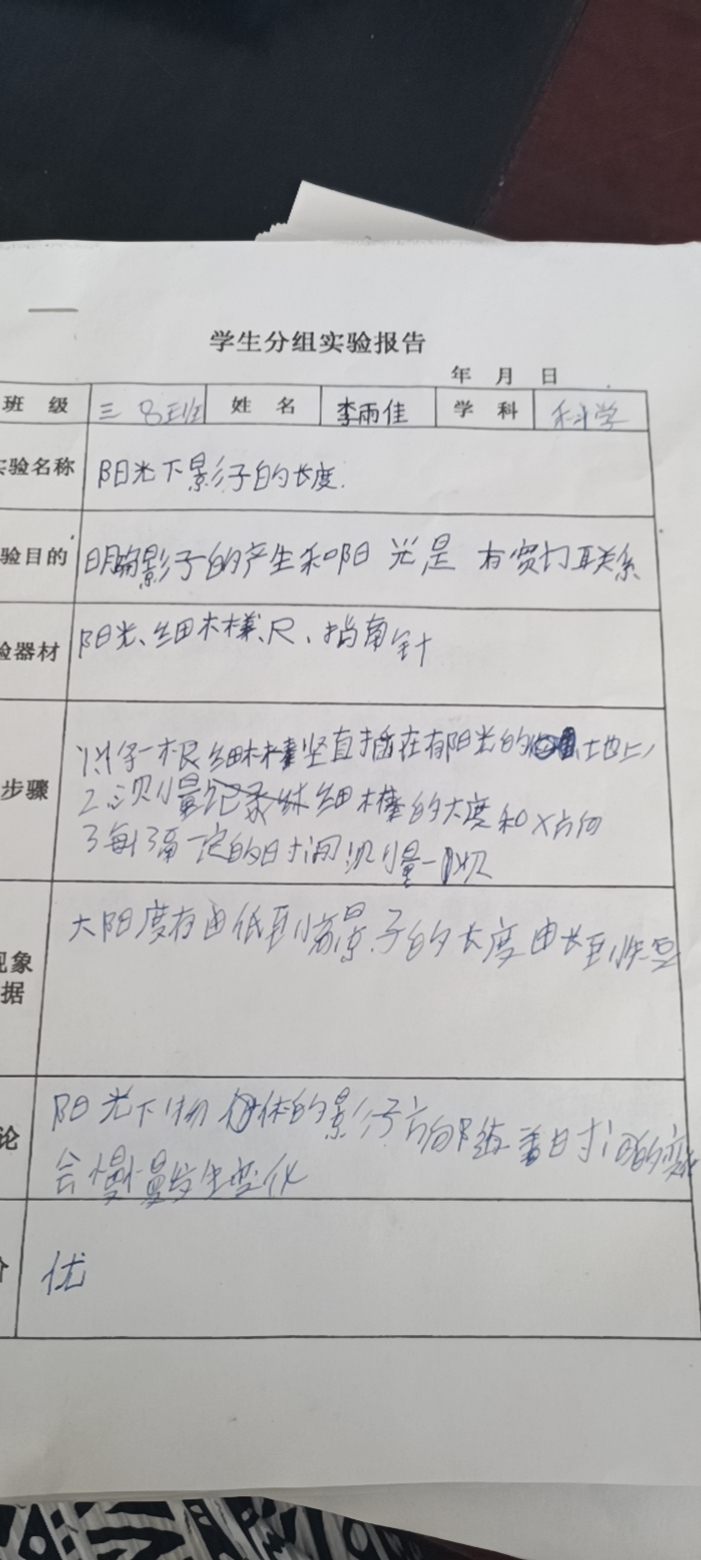 学生分组实验报告
年 月 日
班 级 三 8班 姓 名 李雨佳 学 科 科学
实验名称 阳光下影子的长度.
验目的 明确影子的产生和阳光是有密切联系
验器材 阳光、细木棒、尺、指南针
1将一根细木棒竖直插在有阳光的土地上,
步骤
2测量记录细木棒的大度和 方向
3每隔一定的时间测量一次
大阳度有由低到高影子的长度由长到短
现象
据
阳光下物体的影子方向随着时间的变化
论
会慢慢发生变化
价 优